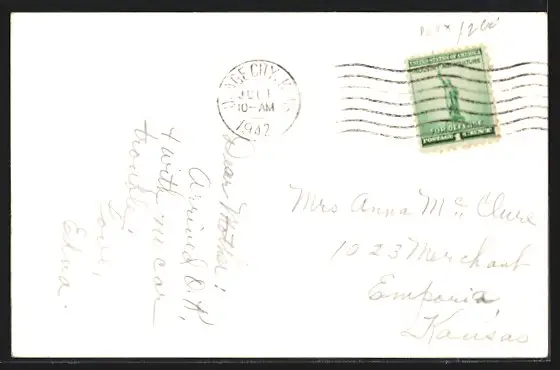 DODGE CITY, KANS.
JUL 1
10-AM
1942
UNITED STATES OF AMERICA
INDUSTRY AGRICULTURE
FOR DEFENSE
POSTAGE 1 CENT
Dear Mother:
Arrived O.K.
& with no car
trouble.
Love,
Edna.
Mrs Anna McClure
1023 Merchant
Emporia
Kansas